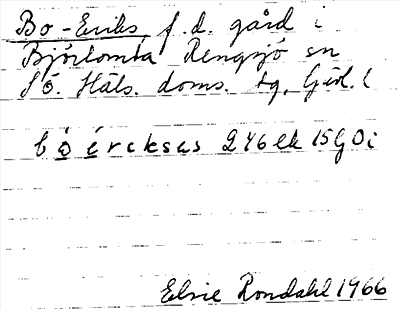 Bo-Eriks, f.d. gård i
Björtomta Rengsjö sn
Sö. Häls. doms. tg, Gävl. l
bo ércksas 246 ek 15 G O i
Elsie Rondahl 1966